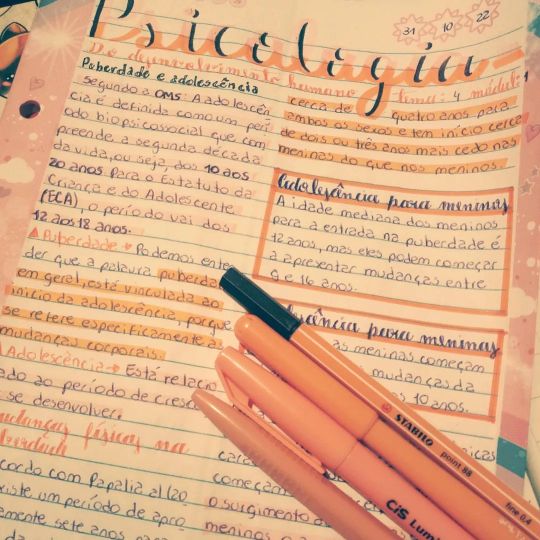 Psicologia
31 10 22
Do desenvolvimento humano tema: 4 módulo: 1
Puberdade e adolescência
segundo a OMS: A adolescên
cia é definida como um perí
odo biopsicossocial que com
preende a segunda década
da vida, ou seja, dos 10 aos
20 anos. Para o Estatuto da
Criança e do Adolescente
(ECA), o período vai dos
12 aos 18 anos.
Puberdade Podemos enten
der que a palavra puberda
em geral, está vinculada ao
início da adolescência, porque
se refere especificamente as
mudanças corporais.
Adolescência → Está relacio
ado ao período de cresc
se desenvolver
mudanças físicas na
berdade
cordo com Papalia al (20
xiste um período de apro
amente sete anos
cerca de quatro anos para
ambos os sexos e tem início cerca
de dois ou três anos mais cedo nas
meninas do que nos meninos.
Adolescência para meninos
A idade mediana dos meninos
para a entrada na puberdade é
12 anos, mas eles podem começar
a apresentar mudanças entre
9 e 16 anos.
lescência para meninas
as meninas começam
mudanças da
10 anos.
sicas
começam
o surgimento d
meninos
STABILO
point 88
fine 0,4
CiS Lumi